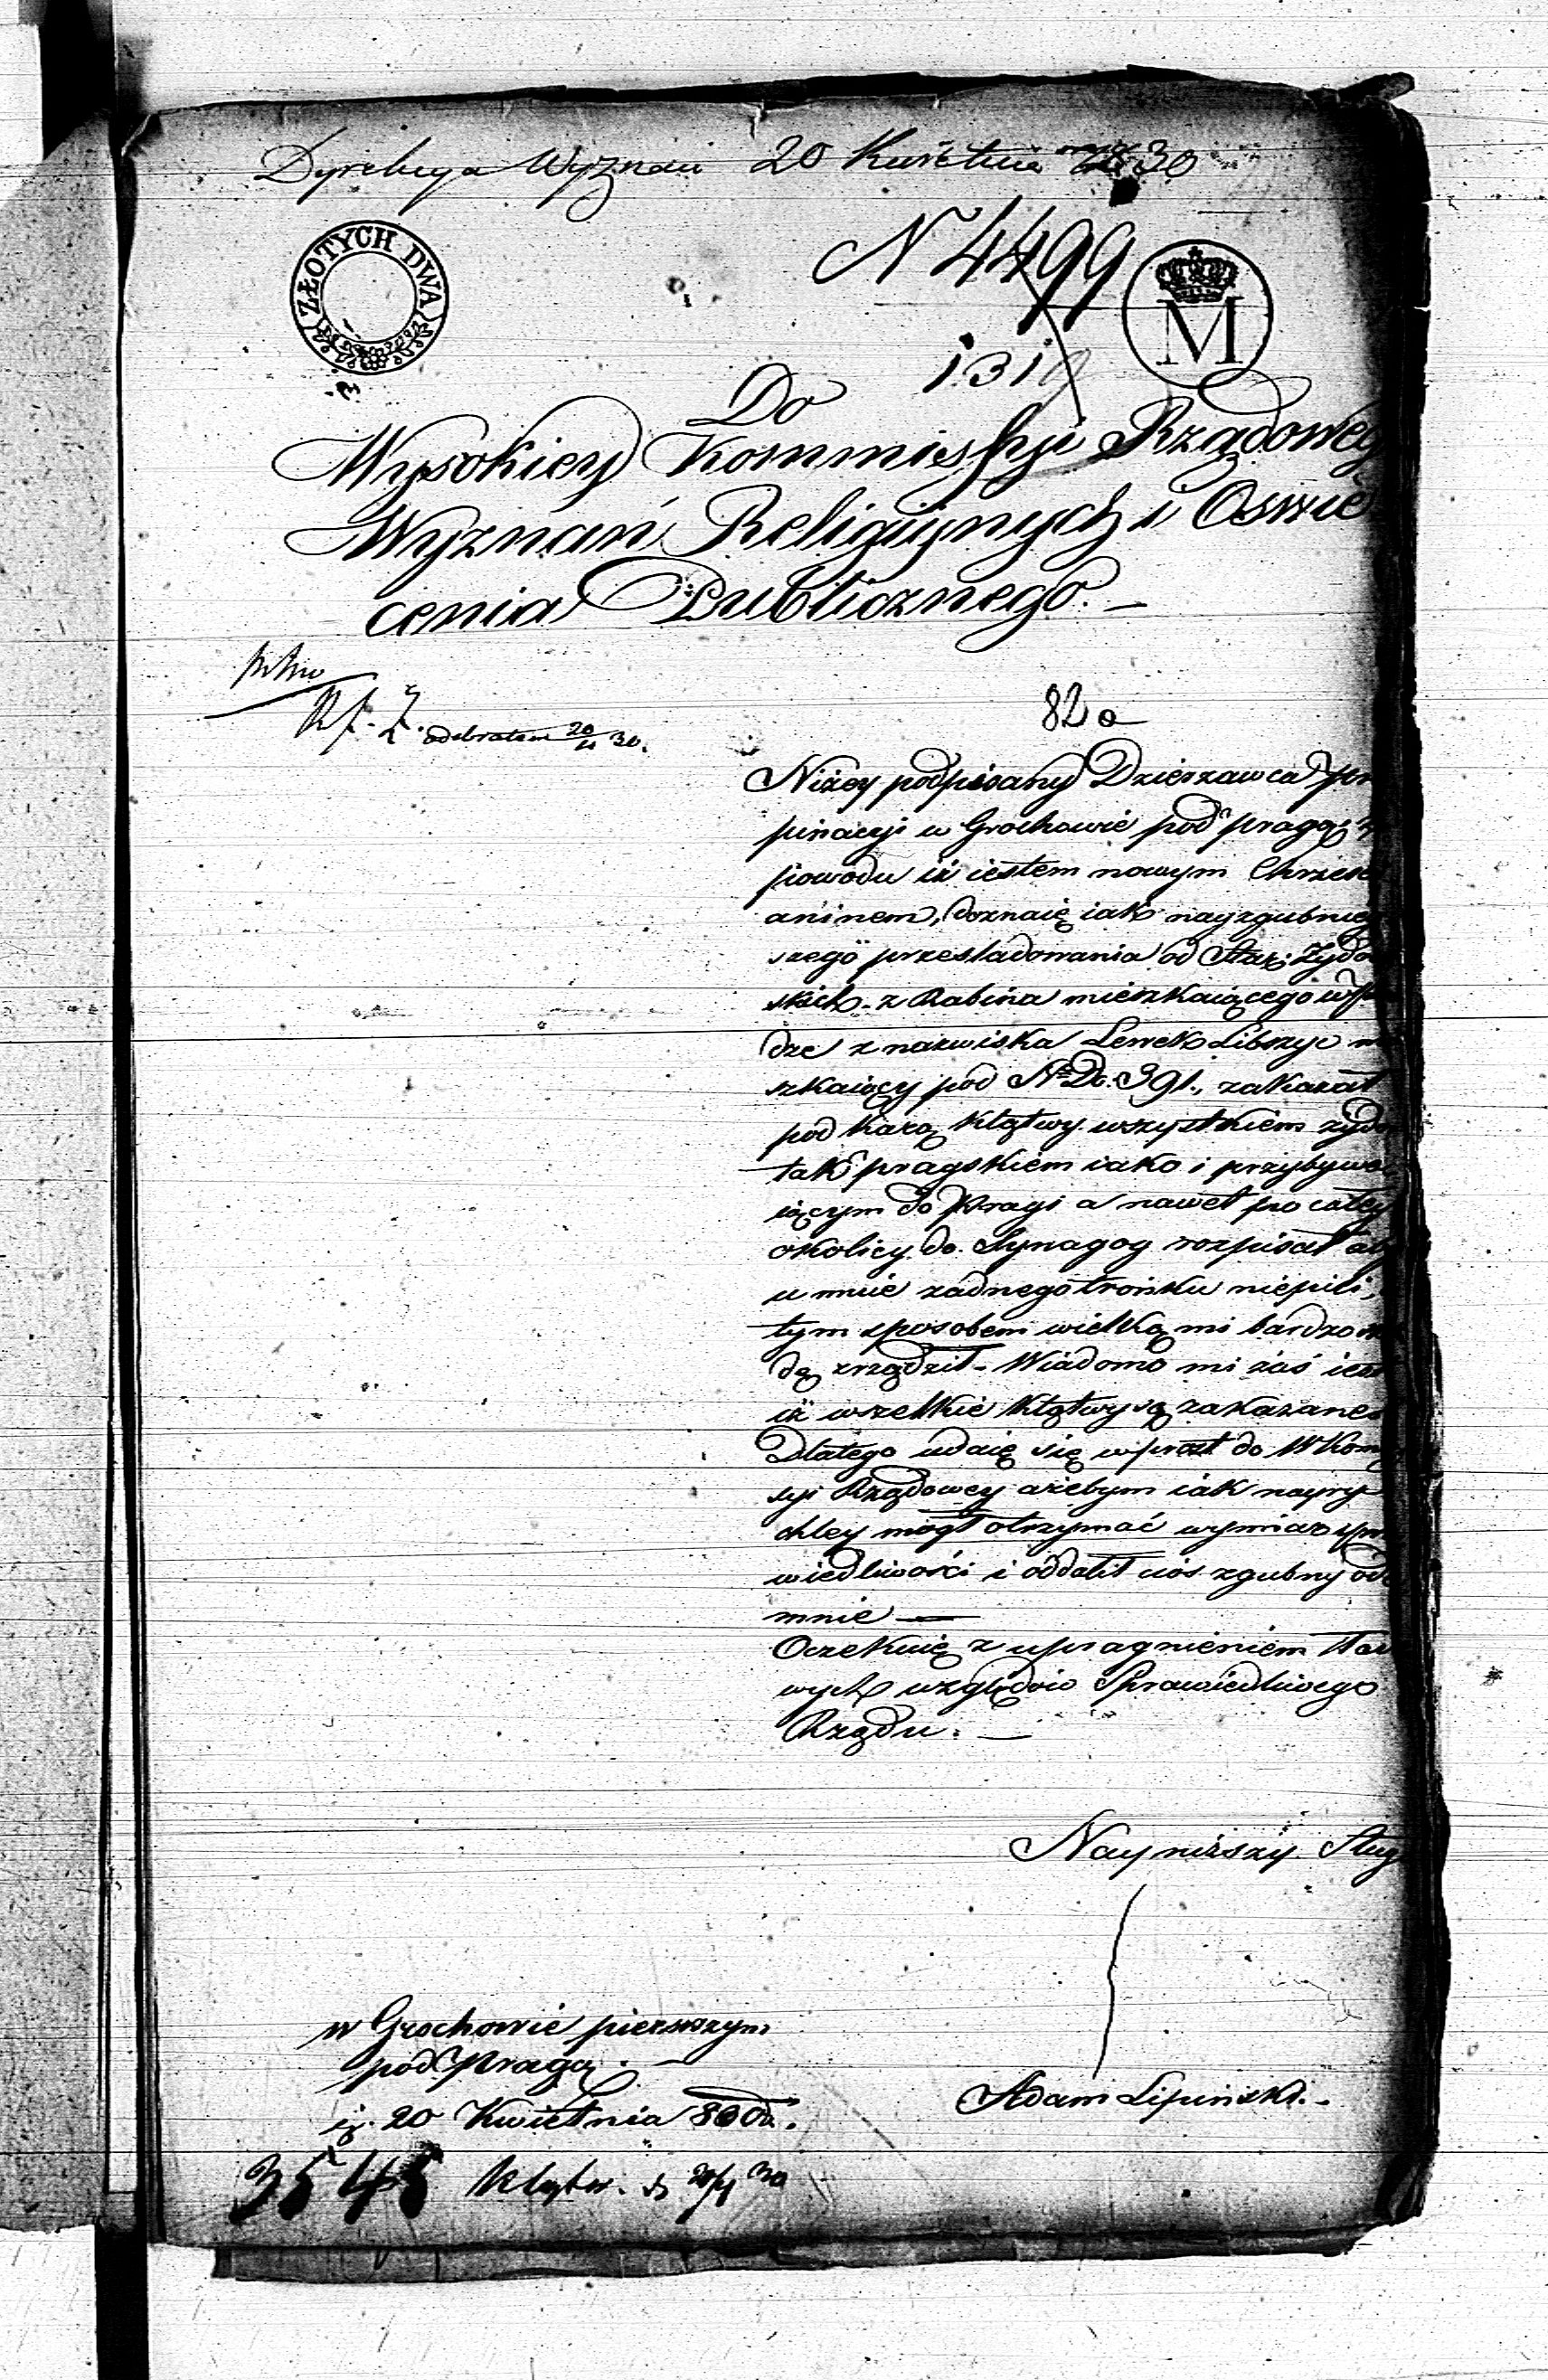 Dyrekcya Wyznań 20 Kwietnia 1830
ZŁOTYCH DWA
N 4499
M
1319
Do
Wysokiey Kommissyi Rządowey
Wyznań Religijnych i Oswie
cenia Publicznego. —
82a
odebrałem 20/4 30.
Niżey podpisany Dzierzawca pro
pinacyi w Grochowie pod Pragą, z
powodu iż iestem nowym Chrześci
aninem, doznaię iak nayzgubniey
szego prześladowania od Star: Zydo
skich - z Rabina mieszkaiącego w Pra
dze z nazwiska Lewek Libszyc mie
szkaiący pod No Do. 391., zakazał
pod karą klątwy wszystkiem zydom
tak pragskiem iako i przybywa
iącym do Pragi a nawet po całey
okolicy do Synagog rozpisał aby
u mnie zadnego trónku niepili,
tym sposobem wielką mi bardzo
dę zrządził - Wiadomo mi zaś iest
iż wszelkie klątwy są zakazane
Dlatego udaię się wprost do W Kommi
syi Rządowey ażebym iak nayry
chley mógł otrzymać wymiar spra
wiedliwości i oddalił ciós zgubny ode
mnie —
Oczekuię z upragnieniem łaska
wych względów Sprawiedliwego
Rządu. —
Nayniższy Sługa
w Grochowie pierwszym
pod Pragą. —
20 Kwietnia 830 r.
Adam Lipiński. -
3545 Klątw. 20/4 30